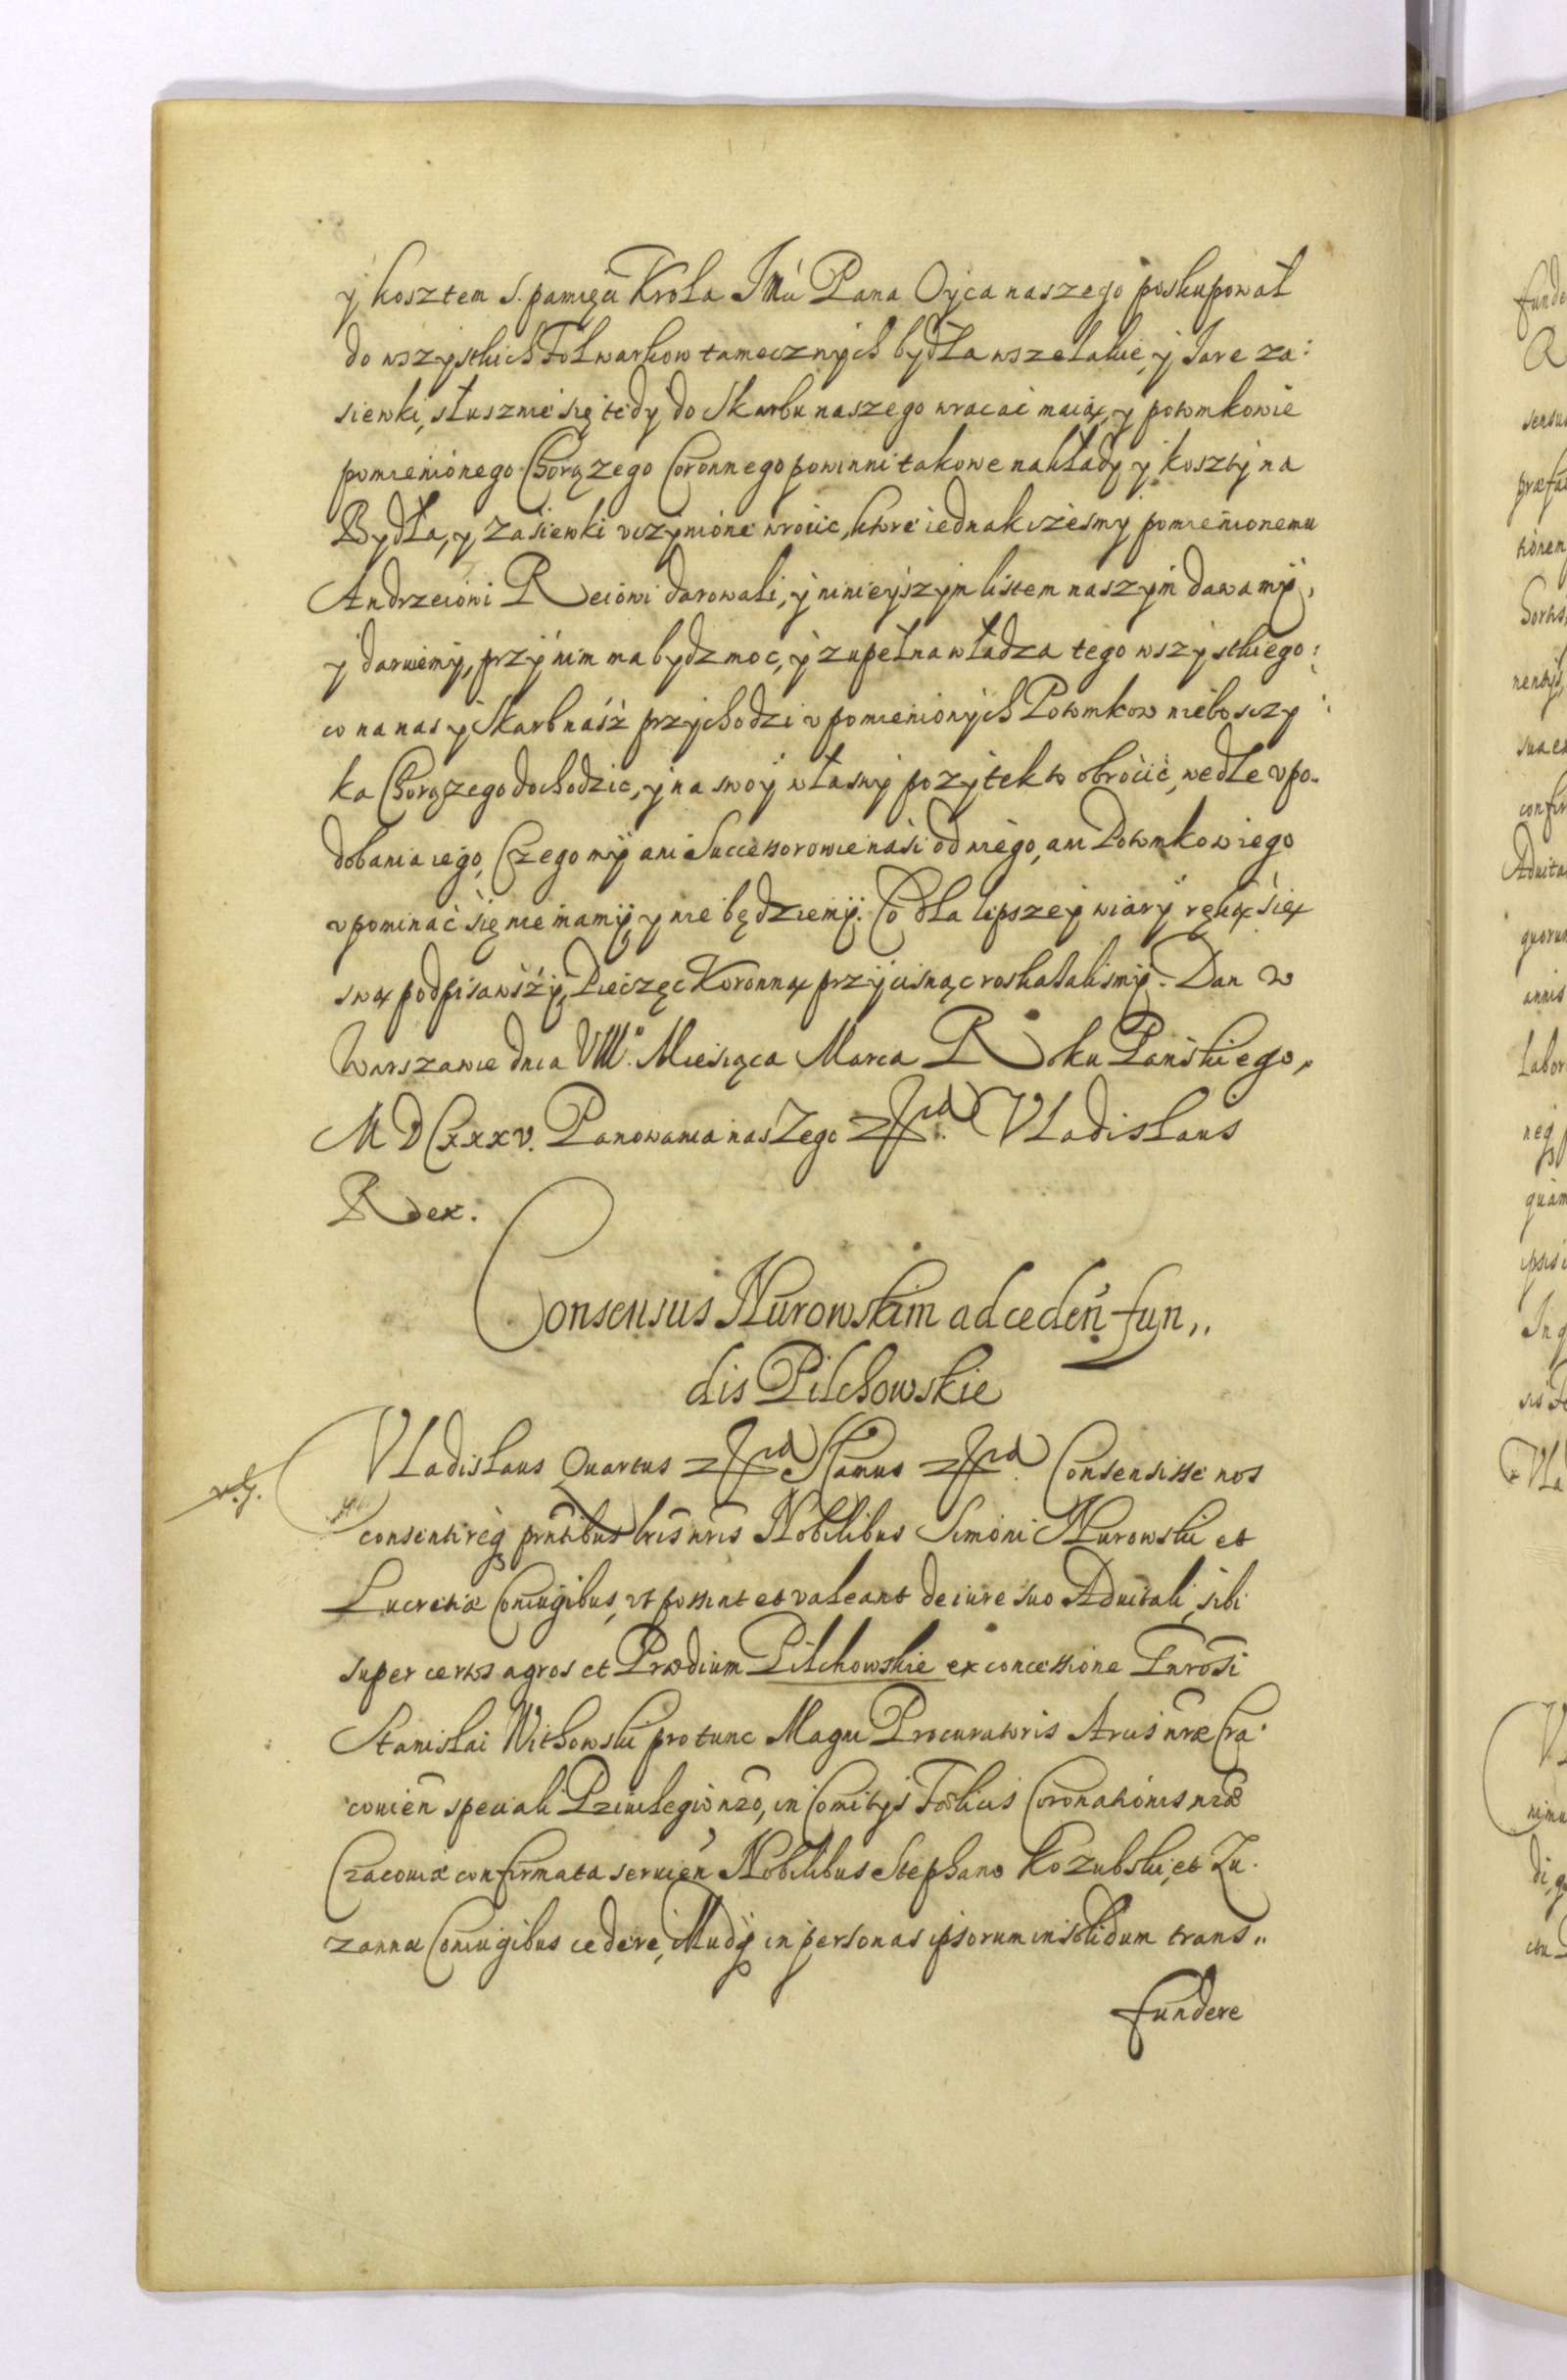 y kosztem s. pamięci Krola JMći Pana Oyca naszego poskupował
do wszystkich Folwarkow tamecznych bydła wszelakie, y Jare za:
siewki, słusznie się tedy do Skarbu naszego wracać maią, y potomkowie
pomienionego Chorązego Coronnego powinni takowe nakłady y koszty na
Bydła, y zasiewki vczynione wrocic, ktore iednak iżesmy pomienionemu
Andrzeiowi Reiowi darowali, y ninieyszym listem naszym dawamy,
y daruiemy, przy nim ma bydz moc, y zupełna władza tego wszystkiego:
co na nas y Skarb nasz przychodzi v pomienionych Potomkow nieboszczy:
ka Chorązego dochodzic, y na swoy własny pozytek to obrocić, wedle vpo-
dobania iego, Czego my ani Successorowie nasi od niego, ani Potomkow iego
vpominać się nie mamy, y nie będziemy. Co dla lepszey wiary ręką się
swą podpisawszy, Pieczęc Koronną przycisnąc roskazalismy. Dan w
Warszawie dnia VIII. Miesiąca Marca Roku Pańskiego,
MDCxxxv. Panowania naszego etc. Vladislaus
Rex.
Consensus Nurowskim ad ceden̄ fun,,
dis Pilchowskie
Vladislaus Quartus etc. Sĩgnamus etc. Consensisse nos
consentireq̃ pn̄tibus lrīs nrīs Nobilibus Simoni Nurowski et
Lucretiæ Coniugibus, vt possint et valeant de iure suo Aduitali, sibi
super certos agros et Prædium Pilchowskie ex concessione Gnrosi
Stanislai Withowski pro tunc Magni Procuratoris Arcis nræ Cra:
couien̄ speciali Priuilegio nrō, in Comitys Fœlicis Coronationis nrǣ
Cracouiæ confirmata seruien̄ Nobilibus Stephano Kozubski, et Zu.
zannæ Coniugibus cedere, illudq̃ in personas ipsorum in solidum trans,,
fundere